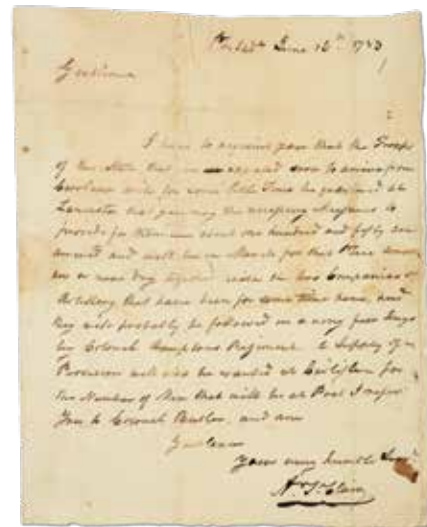 Philada June 12th 1783
Gentlemen
I have to acquaint you that the Troops
of this State that are expected soon to arrive from
Carolina will for some little Time be quartered at
Lancaster that you may take necessary Measures to
provide for them — about one hundred and fifty are
arrived and will be in March for this Place
or a near day together with the two Companies of
Artillery that have been for some time here, and
they will probably be followed in a very few days
by Colonel Hamptons Regiment. A Supply of
Provision will also be wanted at Carlisle for
the Number of Men that will be at that Post I refer
You to Colonel Butler, and am
Gentlemen
Your very humble Servt
Ar. St. Clair